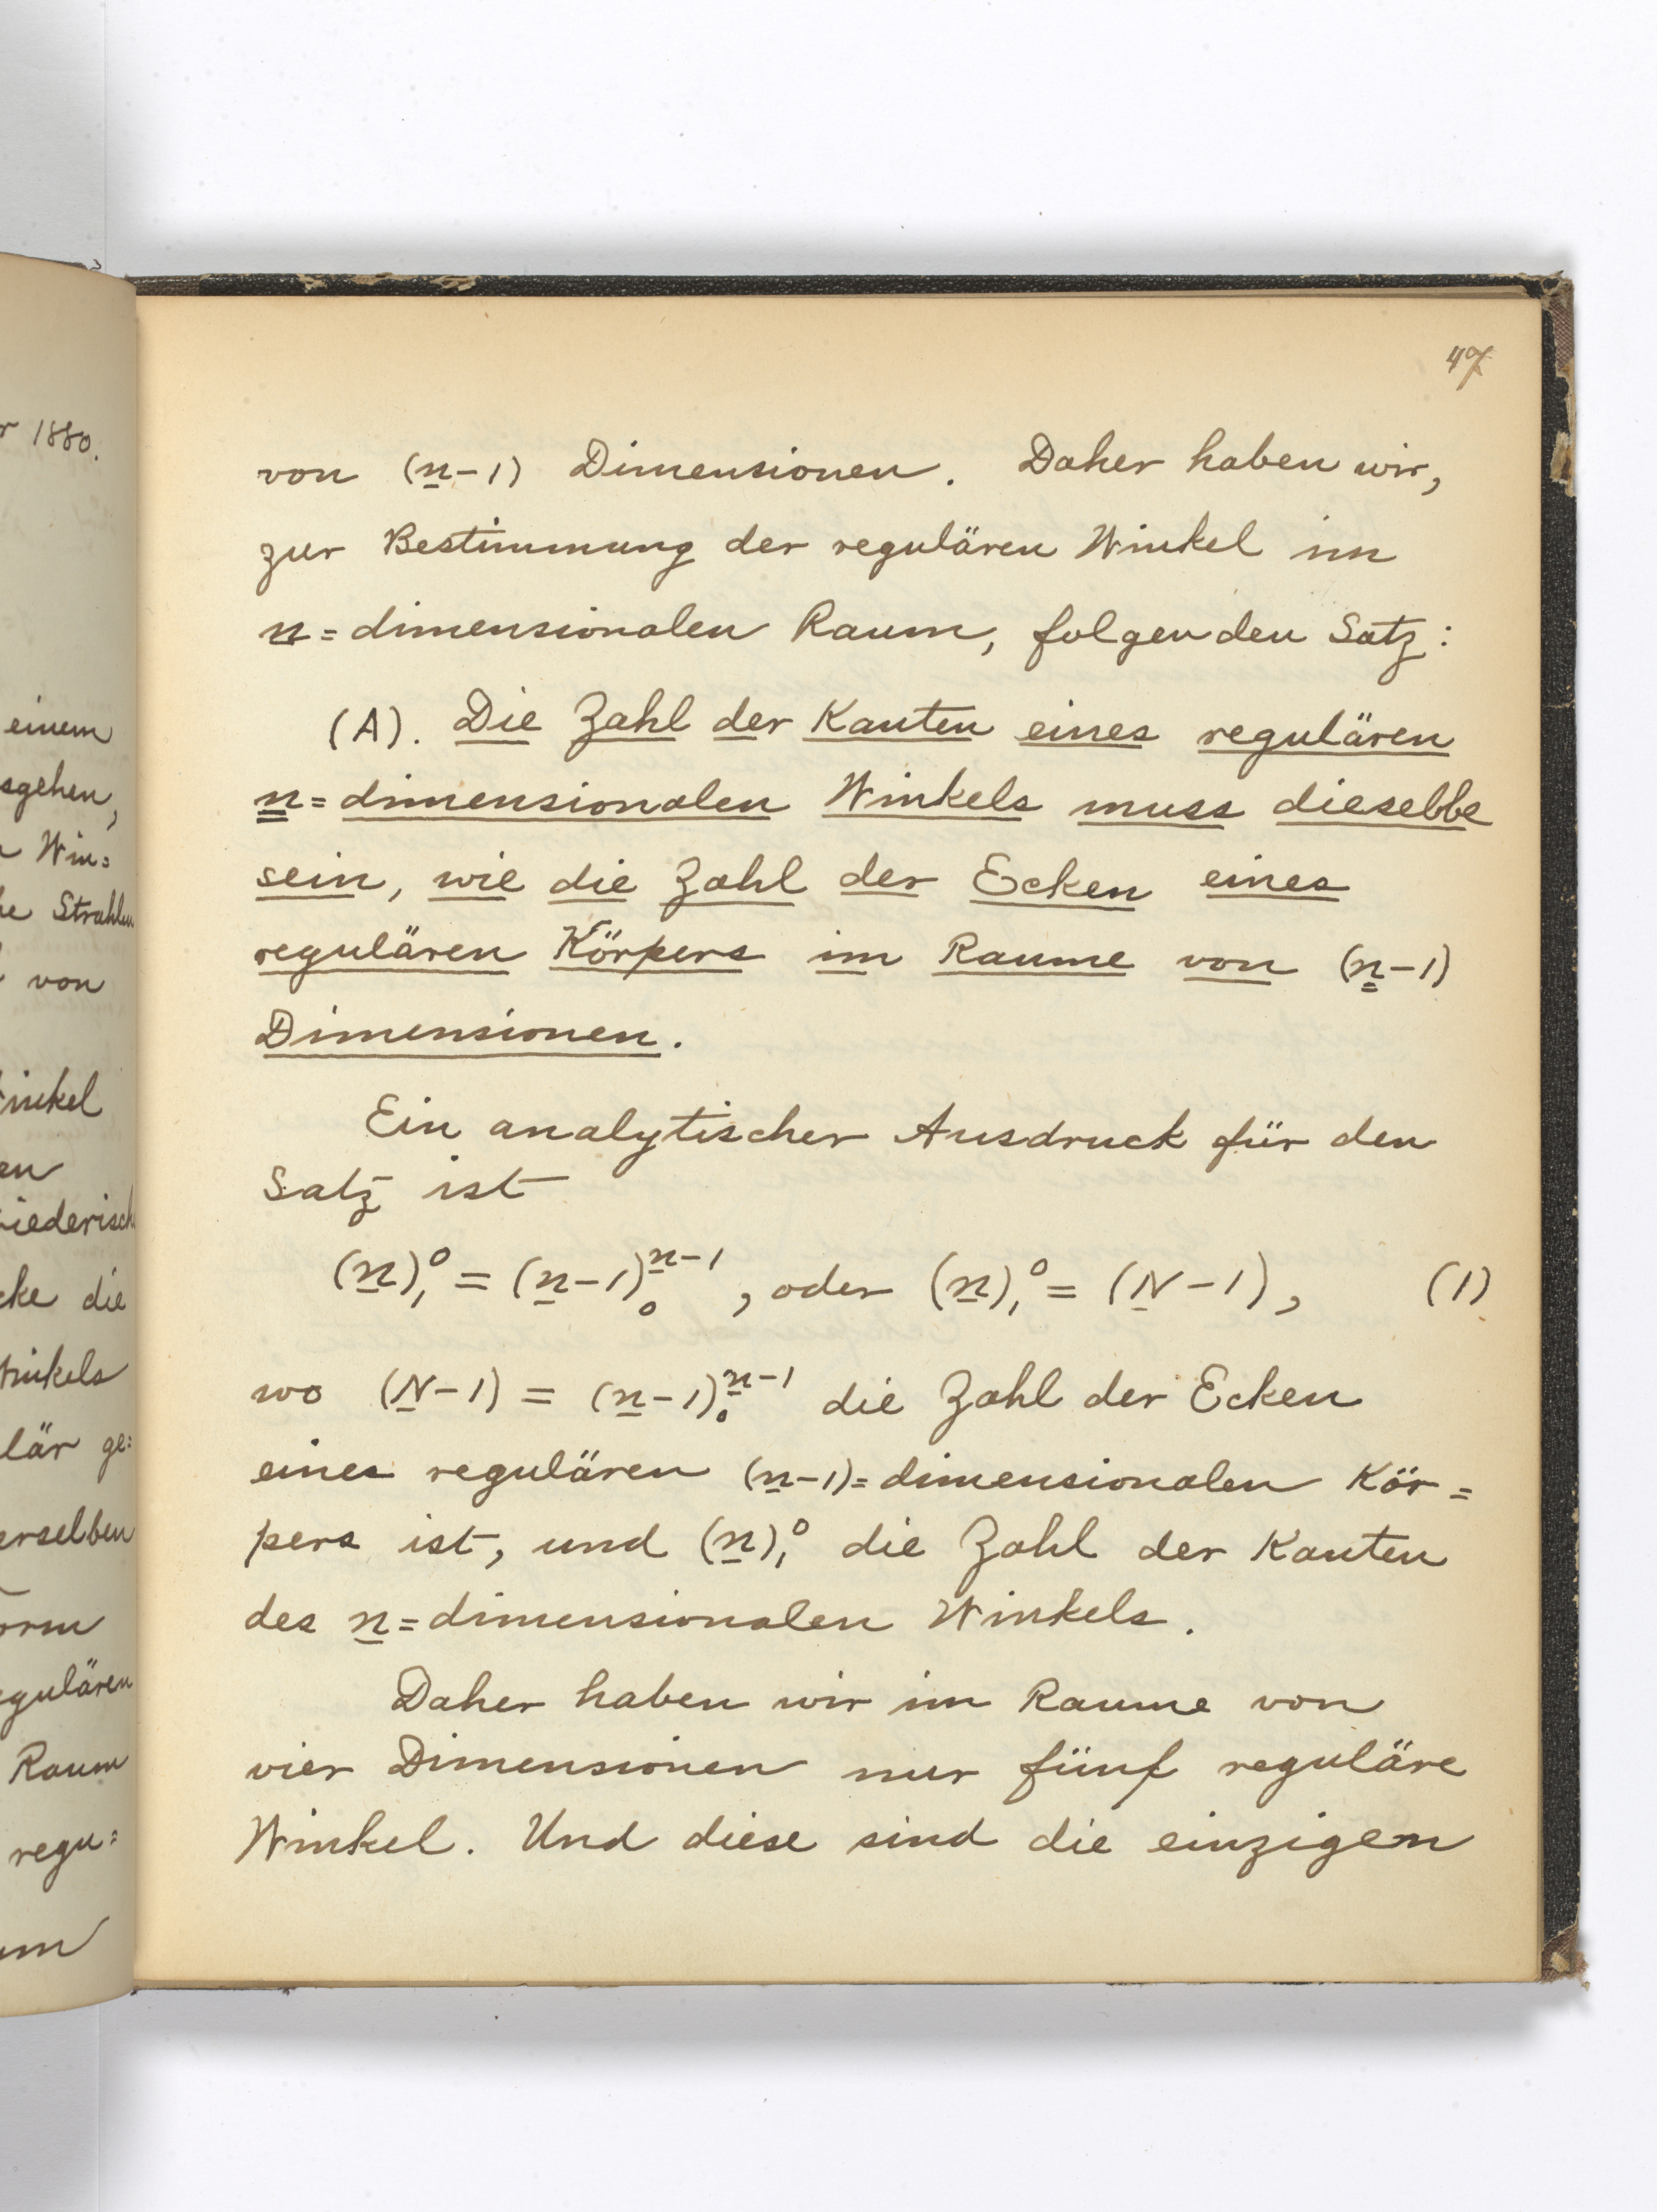 r 1880.
einem
sgehen,
Win=
he Strahlen
von
inkel
en
iederisch
cke die
inkels
lär ge=
erselben
orm
egulären
Raum
regu=
um
47
von (n-1) Dimensionen. Daher haben wir,
zur Bestimmung der regulären Winkel im
n=dimensionalen Raum, folgenden Satz:
(A). Die Zahl der Kanten eines regulären
n=dimensionalen Winkels muss dieselbe
sein, wie die Zahl der Ecken eines
regulären Körpers im Raume von (n-1)
Dimensionen.
Ein analytischer Ausdruck für den
Satz ist
(n)₁⁰ = (n-1)₀ⁿ⁻¹, oder (n)₁⁰ = (N-1), (1)
wo (N-1) = (n-1)₀ⁿ⁻¹ die Zahl der Ecken
eines regulären (n-1)=dimensionalen Kör=
pers ist, und (n)₁⁰ die Zahl der Kanten
des n=dimensionalen Winkels.
Daher haben wir im Raume von
vier Dimensionen nur fünf reguläre
Winkel. Und diese sind die einzigen